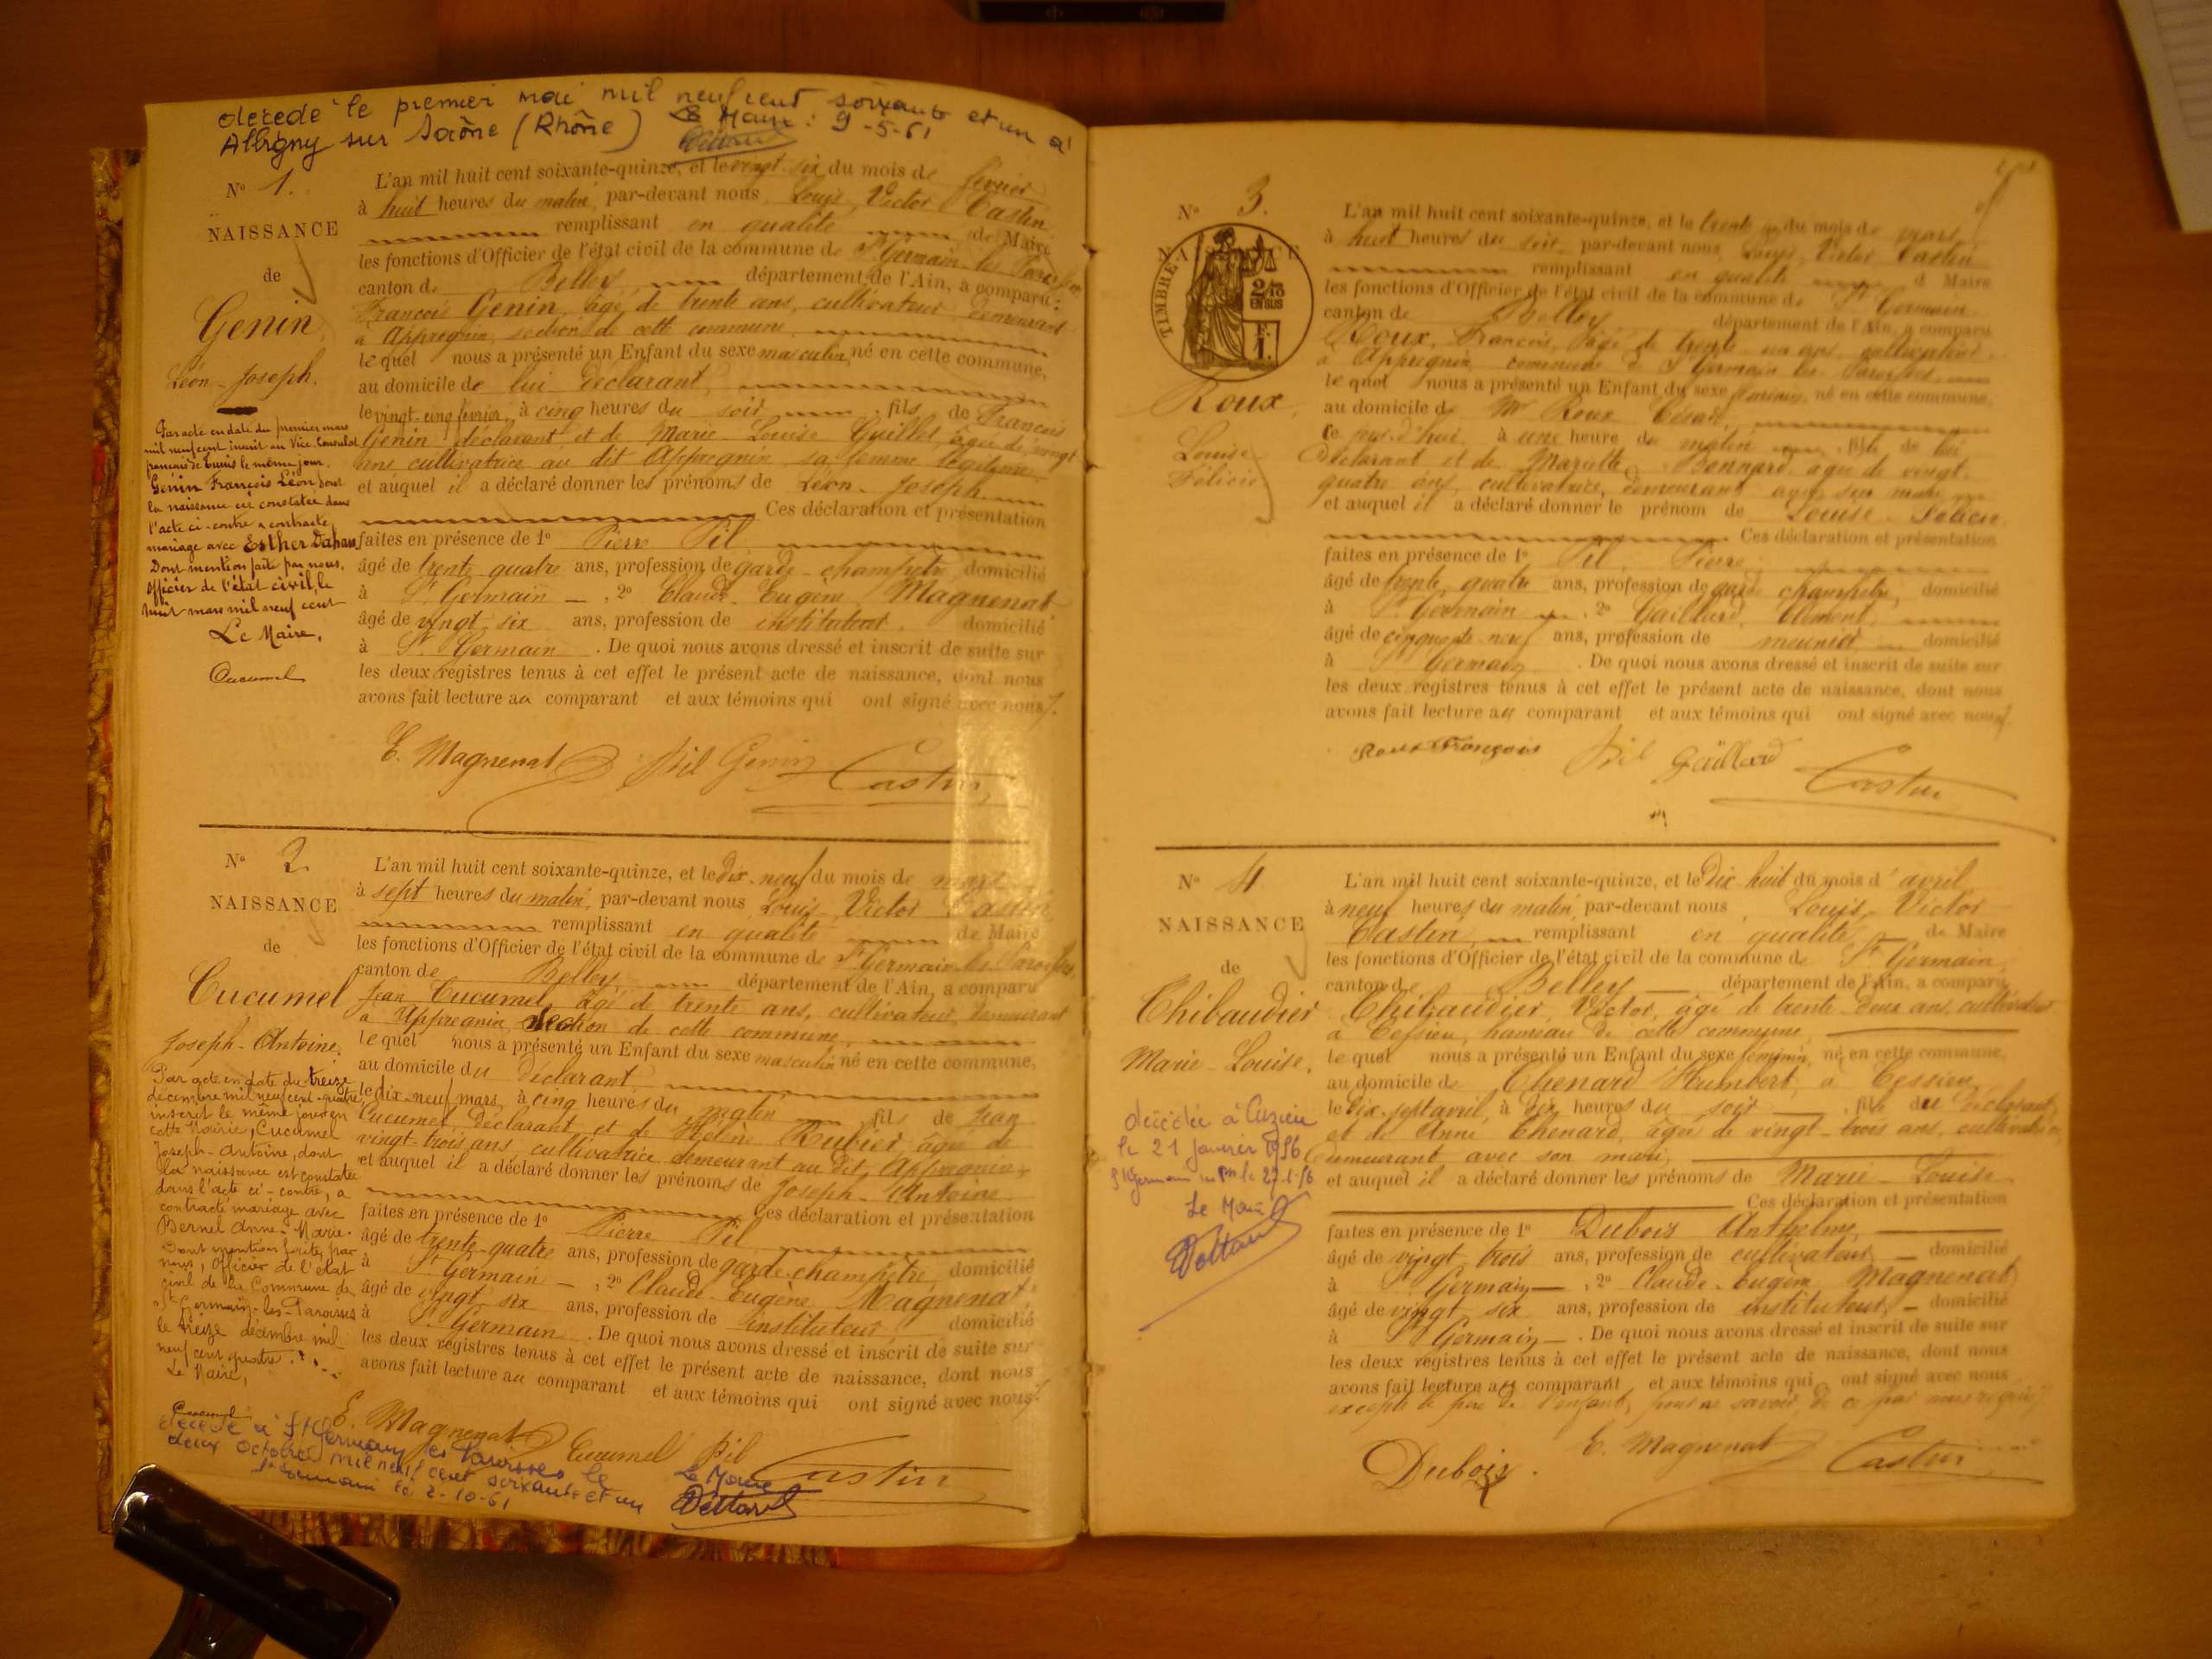 décédé le premier mai mil neuf cent soixante et un à
Albigny sur Saône (Rhône) Le Maire : 9-5-61
N° 1.
NAISSANCE
de
Genin
Léon-Joseph.
Par acte en date du premier mars
mil neuf cent inscrit au Vice Consulat
français de Tunis le même jour,
Genin François Léon dont
la naissance est constatée dans
l'acte ci-contre a contracté
mariage avec Esther Dahan
Dont mention faite par nous,
Officier de l'état civil, le
huit mars mil neuf cent
Le Maire,
Cucumel
L'an mil huit cent soixante-quinze, et le vingt-six du mois de février
à huit heures du matin, par-devant nous, Louis, Victor Castin
remplissant en qualité de Maire
les fonctions d'Officier de l'état civil de la commune de St Germain-les-Paroisses
canton de Belley, département de l'Ain, a comparu :
François Genin, âgé de trente ans, cultivateur demeurant
à Appregnin, section de cette commune,
lequel nous a présenté un Enfant du sexe masculin, né en cette commune,
au domicile de lui déclarant,
le vingt-cinq février, à cinq heures du soir, fils de François
Genin déclarant et de Marie-Louise Guillet âgée de vingt
ans cultivatrice au dit Appregnin sa femme légitime
et auquel il a déclaré donner les prénoms de Léon-Joseph
Ces déclaration et présentation
faites en présence de 1° Pierre Pil
âgé de trente-quatre ans, profession de garde-champêtre domicilié
à St Germain — , 2° Claude-Eugène Magnenat
âgé de vingt-six ans, profession de instituteur domicilié
à St Germain . De quoi nous avons dressé et inscrit de suite sur
les deux registres tenus à cet effet le présent acte de naissance, dont nous
avons fait lecture au comparant et aux témoins qui ont signé avec nous.
E. Magnenat Pil Genin Castin
N° 2
NAISSANCE
de
Cucumel
Joseph-Antoine.
Par acte en date du treize
décembre mil neuf cent-quatre,
inscrit le même jour en
cette Mairie, Cucumel
Joseph-Antoine, dont
la naissance est constatée
dans l'acte ci-contre, a
contracté mariage avec
Bernel Anne-Marie.
Dont mention faite par
nous, Officier de l'état
civil de la Commune de
St Germain-les-Paroisses
le treize décembre mil
neuf cent quatre.
Le Maire,
Cucumel
L'an mil huit cent soixante-quinze, et le dix-neuf du mois de mars
à sept heures du matin, par-devant nous Louis-Victor Castin
remplissant en qualité de Maire
les fonctions d'Officier de l'état civil de la commune de St Germain-les-Paroisses,
canton de Belley, département de l'Ain, a comparu
Jean Cucumel, âgé de trente ans, cultivateur, demeurant
à Appregnin, section de cette commune,
lequel nous a présenté un Enfant du sexe masculin né en cette commune,
au domicile du déclarant,
le dix-neuf mars, à cinq heures du matin fils de Jean
Cucumel déclarant et de Hélène Rubier âgée de
vingt-trois ans cultivatrice demeurant au dit Appregnin,
et auquel il a déclaré donner les prénoms de Joseph-Antoine
Ces déclaration et présentation
faites en présence de 1° Pierre Pil
âgé de trente-quatre ans, profession de garde-champêtre domicilié
à St Germain — , 2° Claude-Eugène Magnenat
âgé de vingt six ans, profession de instituteur domicilié
à St Germain . De quoi nous avons dressé et inscrit de suite sur
les deux registres tenus à cet effet le présent acte de naissance, dont nous
avons fait lecture au comparant et aux témoins qui ont signé avec nous.
E. Magnenat Cucumel Pil Castin
décédé à St Germain les Paroisses le
deux octobre mil neuf cent soixante et un
St Germain le 2-10-61
Le Maire
N° 3.
NAISSANCE
TIMBRE
2/10
EN SUS
Roux,
Louise
Félicie
L'an mil huit cent soixante-quinze, et le trente un du mois de mars
à huit heures du soir, par-devant nous, Louis-Victor Castin
remplissant en qualité d Maire
les fonctions d'Officier de l'état civil de la commune de St Germain
canton de Belley département de l'Ain, a comparu
Roux, François, âgé de trente-un ans, cultivateur
à Appregnin, commune de St Germain les Paroisses
lequel nous a présenté un Enfant du sexe féminin, né en cette commune,
au domicile de Mr Roux César,
ce jourd'hui, à une heure du matin, fille de lui
déclarant et de Mariette Bonnard, âgée de vingt-
quatre ans, cultivatrice, demeurant avec son mari
et auquel il a déclaré donner le prénom de Louise-Félicie
Ces déclaration et présentation
faites en présence de 1° Pil, Pierre,
âgé de trente-quatre ans, profession de garde champêtre, domicilié
à St Germain , 2° Gaillard, Clément,
âgé de cinquante-neuf ans, profession de meunier domicilié
à St Germain . De quoi nous avons dressé et inscrit de suite sur
les deux registres tenus à cet effet le présent acte de naissance, dont nous
avons fait lecture au comparant et aux témoins qui ont signé avec nous.
Roux François Pil Gaillard Castin
N° 4.
NAISSANCE
de
Chibaudier
Marie-Louise,
décédée à Cuzieu
le 21 Janvier 1956
St Germain le 27-1-56
Le Maire
L'an mil huit cent soixante-quinze, et le dix huit du mois d'avril
à neuf heures du matin, par-devant nous, Louis-Victor
Castin, remplissant en qualité de Maire
les fonctions d'Officier de l'état civil de la commune de St Germain,
canton de Belley — département de l'Ain, a comparu
Chibaudier, Victor, âgé de trente-deux ans, cultivateur
à Cessieu, hameau de cette commune,
lequel nous a présenté un Enfant du sexe féminin, né en cette commune,
au domicile de Chenard Humbert, à Cessieu
le dix-sept avril, à dix heures du soir —, fille du déclarant,
et de Anne Chenard, âgée de vingt-trois ans, cultivatrice,
demeurant avec son mari,
et auquel il a déclaré donner les prénoms de Marie-Louise
Ces déclaration et présentation
faites en présence de 1° Dubois Anthelme,
âgé de vingt trois ans, profession de cultivateur, — domicilié
à St Germain — , 2° Claude-Eugène Magnenat
âgé de vingt six ans, profession de instituteur, — domicilié
à St Germain — . De quoi nous avons dressé et inscrit de suite sur
les deux registres tenus à cet effet le présent acte de naissance, dont nous
avons fait lecture au comparant et aux témoins qui ont signé avec nous
excepté le père de l'enfant, pour ne savoir, de ce par nous requis
Dubois. E. Magnenat Castin